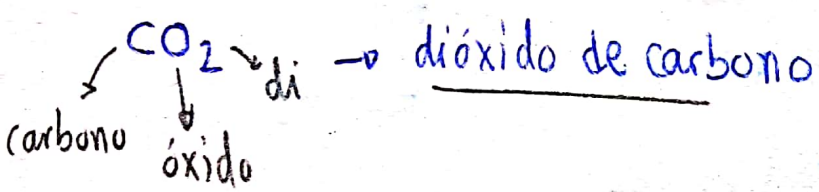 CO2 di → dióxido de carbono
carbono óxido